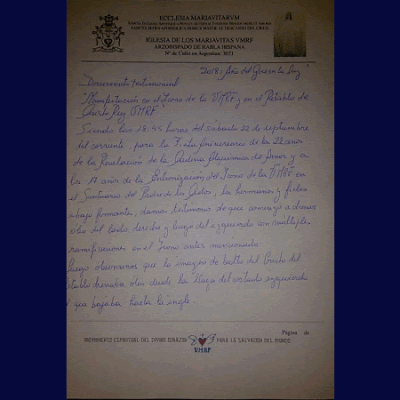 ECCLESIA MARIAVITARVM
IGLESIA DE LOS MARIAVITAS VMRF
ARZOBISPADO DE HABLA HISPANA
Nº de Culto en Argentina: 3021
2018: Año del Gran
Documento testimonial
"Manifestación en el Icono de la VMRF y en el Retablo de
Cristo Rey VMRF"
Siendo las 18:45 horas del sábado 22 de septiembre
del corriente, para la Fiesta Aniversario de los 22 años
de la Revelación de la Cadena de Amor y a
los 17 años de la Entronización del Icono de la VMRF en
el Santuario del Padre de los Cielos, los hermanos y fieles
abajo firmantes, damos testimonio de que comenzó a
óleo del lado derecho y luego del izquierdo con múltiples
transfiguraciones en el Icono antes mencionado
Luego observamos que la imagen de bulto del Cristo del
Retablo óleo desde la llaga del costado izquierdo
que bajaba hasta la ingle.
Página de
MOVIMIENTO ESPIRITUAL DEL DIVINO CORAZÓN PARA LA SALVACIÓN DEL MUNDO
VMRF